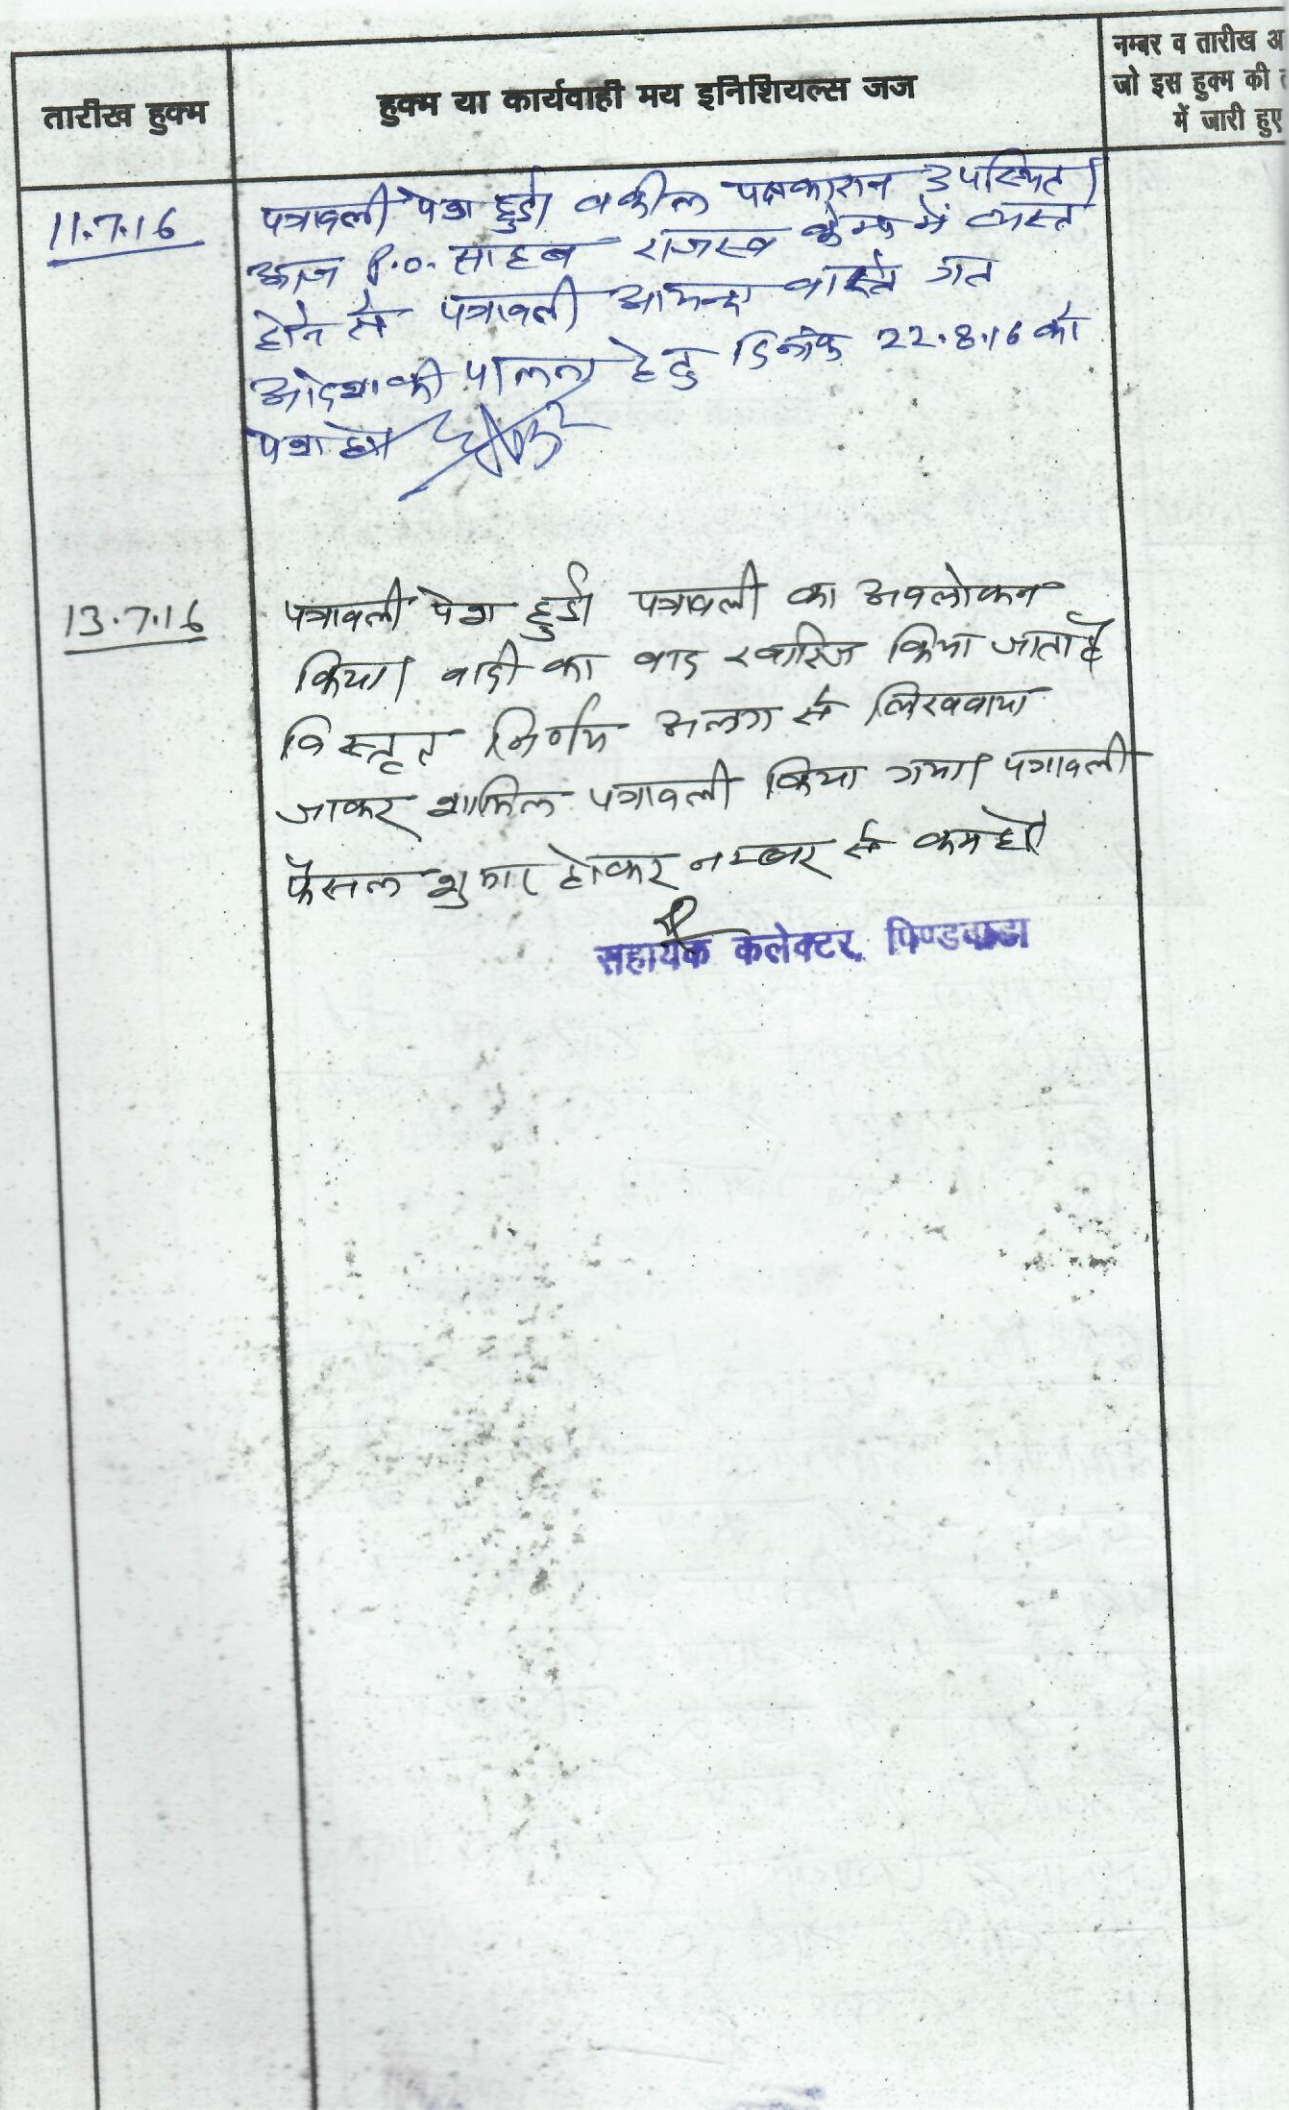 तारीख हुक्म
हुक्म या कार्यवाही मय इनिशियल्स जज
नम्बर व तारीख अ
जो इस हुक्म की त
में जारी हुए
11.7.16
पत्रावली पेश हुई। वकील पक्षकारान उपस्थित।
आज P.O. साहब राजस्व केम्प में व्यस्त
होने से पत्रावली आयन्दा वास्ते गत
आदेश की पालना हेतु दिनांक 22.8.16 को
पेश हो।
13.7.16
पत्रावली पेश हुई। पत्रावली का अवलोकन
किया। वादी का वाद खारिज किया जाता है
विस्तृत निर्णय अलग से लिखवाया
जाकर शामिल पत्रावली किया गया। पत्रावली
फैसल शुमार होकर नम्बर से कम हो।
सहायक कलेक्टर, पिण्डवाडा